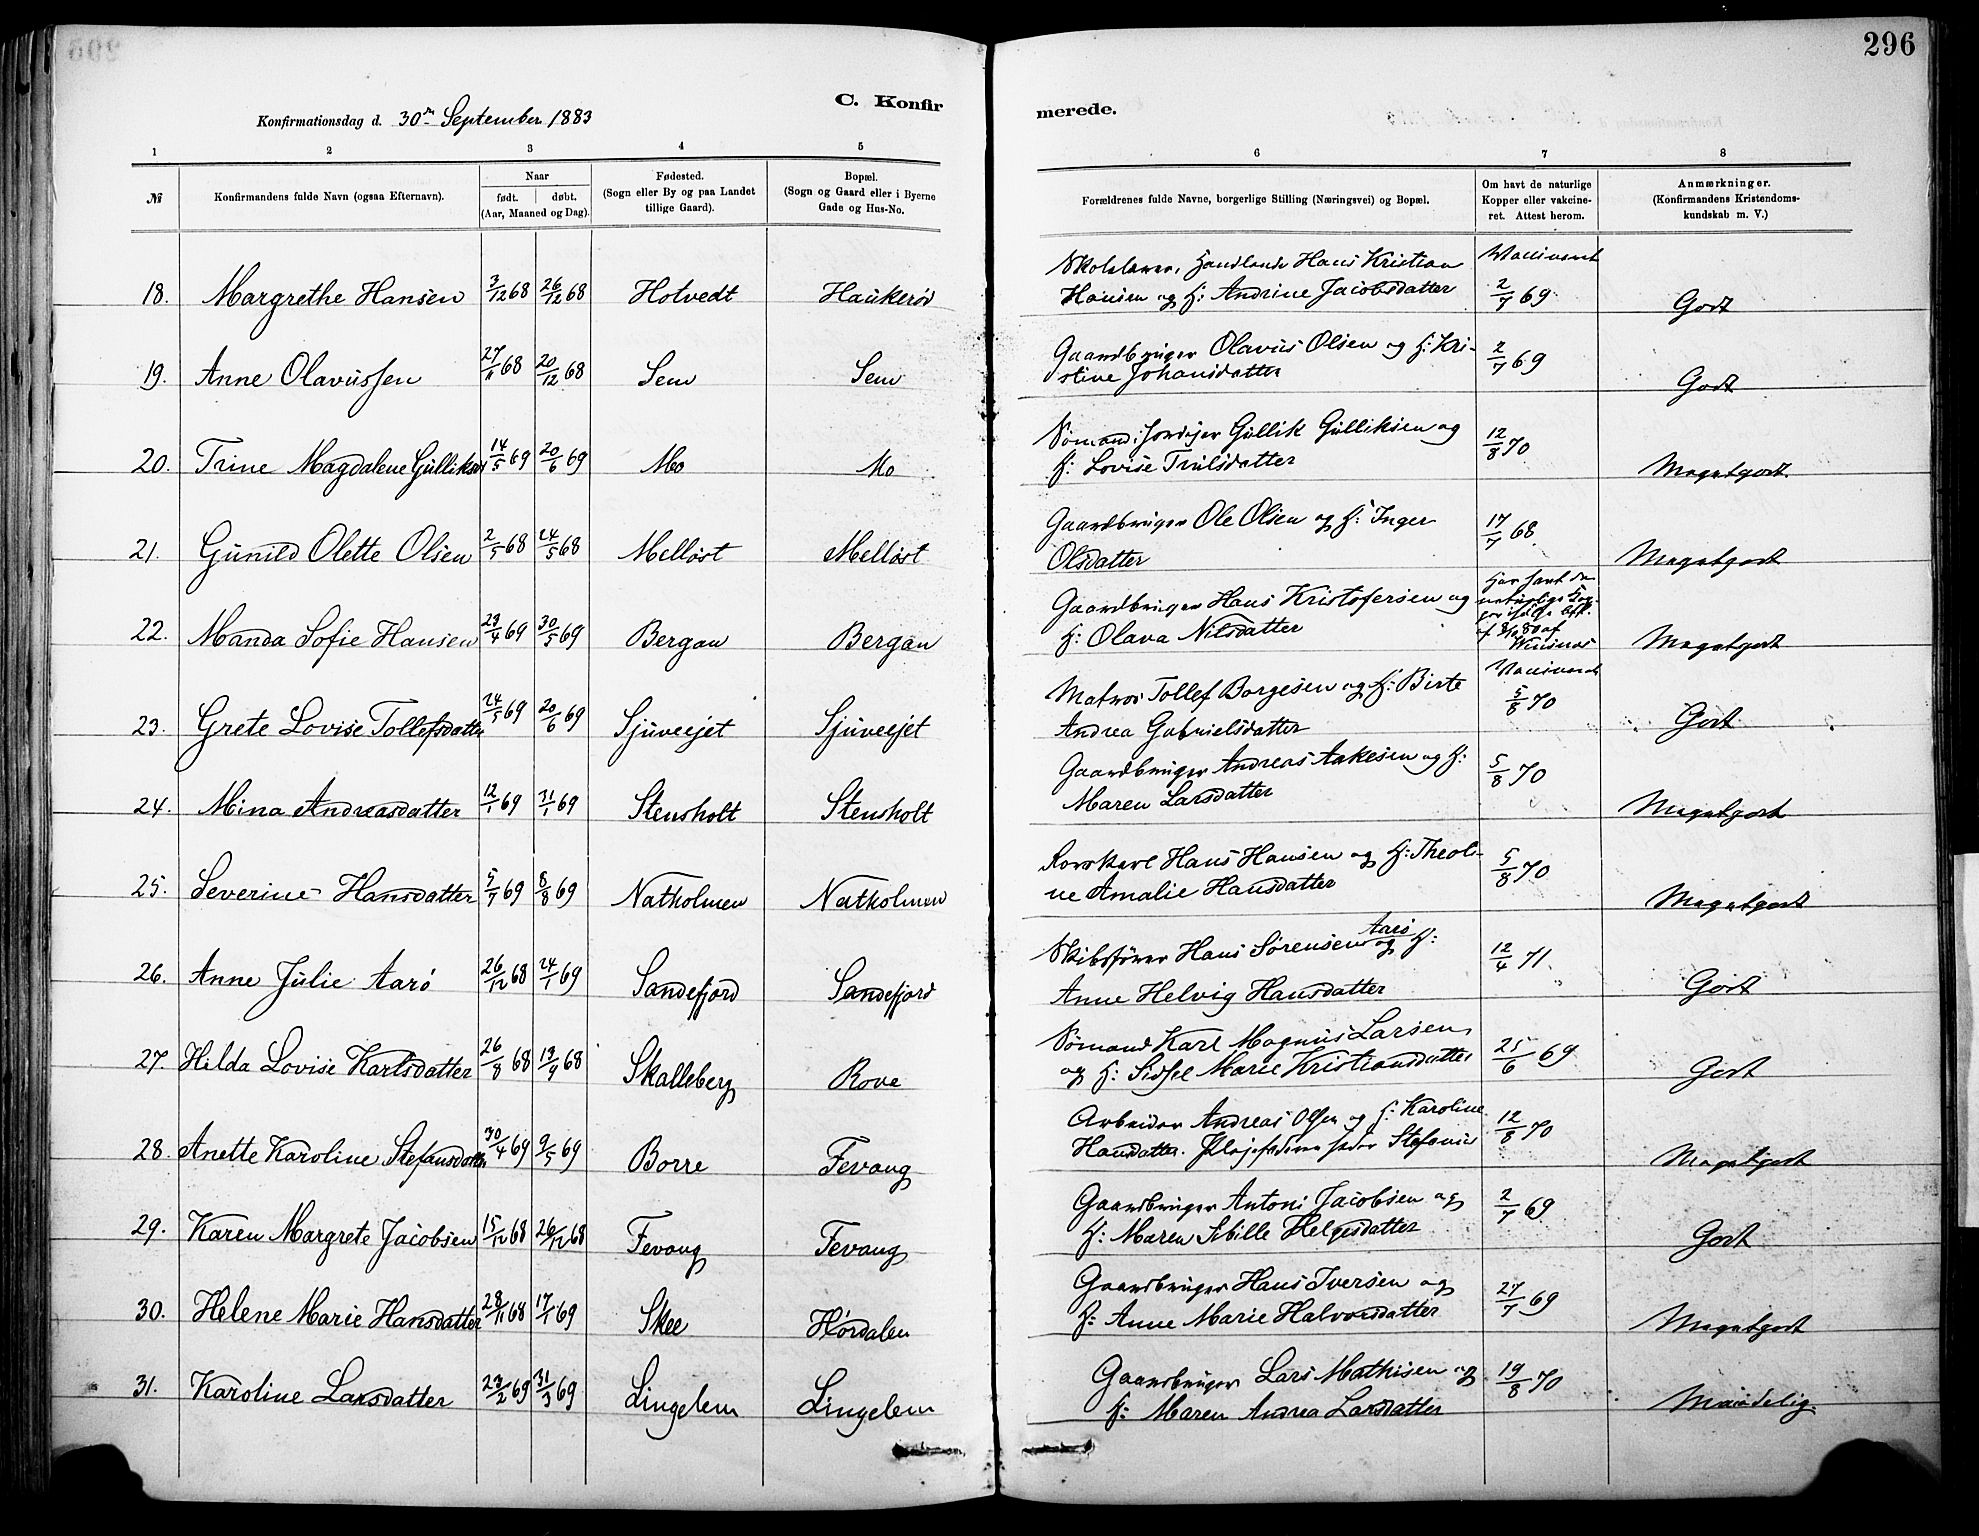 296
C. Konfir
merede.
Konfirmationsdag d. 30te September 1883
1 2 3 4 5 6 7 8
№ Konfirmandens fulde Navn (ogsaa Efternavn).
Naar
født. døbt.
(Aar, Maaned og Dag).
Fødested.
(Sogn eller By og paa Landet
tillige Gaard).
Bopæl.
(Sogn og Gaard eller i Byerne
Gade og Hus-No.
Forældrenes fulde Navne, borgerlige Stilling (Næringsvei) og Bopæl.
Om havt de naturlige
Kopper eller vakcine-
ret. Attest herom.
Anmærkninger.
(Konfirmandens Kristendoms-
kundskab m. V.)
18. Margrethe Hansen 3/12 68 26/12 68 Hotvedt Haukerød
Hans Kristian
Hansen og H: Andrine Jacobsdatter 2/7 69 Godt
19. Anne Olavussen 27/11 68 20/12 68 Sem Sem
Gaardbruger Olavus Olsen og H: Kri-
stine Johansdatter 2/7 69 Godt
20. Trine Magdalene Gulliksen 14/5 69 20/6 69 Mo Mo
Sømand, Gullik Gulliksen og
H: Lovise Trulsdatter 12/8 70 Megetgodt.
21. Gunild Olette Olsen 2/5 68 24/5 68 Melløst Melløst
Gaardbruger Ole Olsen og H: Inger
Olsdatter 17/7 68 Megetgodt
22. Manda Sofie Hansen 23/4 69 30/5 69 Bergan Bergan
Gaardbruger Hans Kristofersen og
H: Olava Nilsdatter
Har havt de
naturlige Kop-
Megetgodt
23. Grete Lovise Tollefsdatter 24/5 69 20/6 69 Sjuveejet Sjuveejet
Matros Tollef Borgesen og H: Birte
Andrea Gabrielsdatter 5/8 70 Godt
24. Mina Andreasdatter 12/1 69 31/1 69 Stensholt Stensholt
Gaardbruger Andreas Aakesen og H:
Maren Larsdatter 5/8 70 Megetgodt
25. Severine Hansdatter 5/7 69 8/8 69 Natholmen Natholmen
Rorskarl Hans Hansen og H: Theoli-
ne Amalie Hansdatter 5/8 70 Megetgodt
26. Anne Julie Aarø 26/12 68 24/1 69 Sandefjord Sandefjord
Skibsfører Hans Sørensen Aarø og H:
Anne Helvig Hansdatter 12/4 71. Godt
27. Hilda Lovise Karlsdatter 26/8 68 13/9 68 Skalleberg Rove
Sømand Karl Magnus Larsen
og H: Sidsel Marie Kristiansdatter 25/6 69 Godt
28. Anette Karoline Stefansdatter 30/4 69 9/5 69 Borre Fevang
Arbeider Andreas Olsen og H: Karoline
Hansdatter. 12/8 70 Megetgodt
29. Karen Margrete Jacobsen 15/12 68 26/12 68 Fevang Fevang
Gaardbruger Antoni Jacobsen og
H: Maren Sibille Helgesdatter 2/7 69 Godt
30. Helene Marie Hansdatter 28/11 68 17/1 69 Skee Hørdalen
Gaardbruger Hans Iversen og
H: Anne Marie Halvorsdatter 27/7 69 Megetgodt
31. Karoline Larsdatter 23/2 69 31/3 69 Lingelem Lingelem
Gaardbruger Lars Mathisen og
H: Maren Andrea Larsdatter 19/8 70 Maadelig.